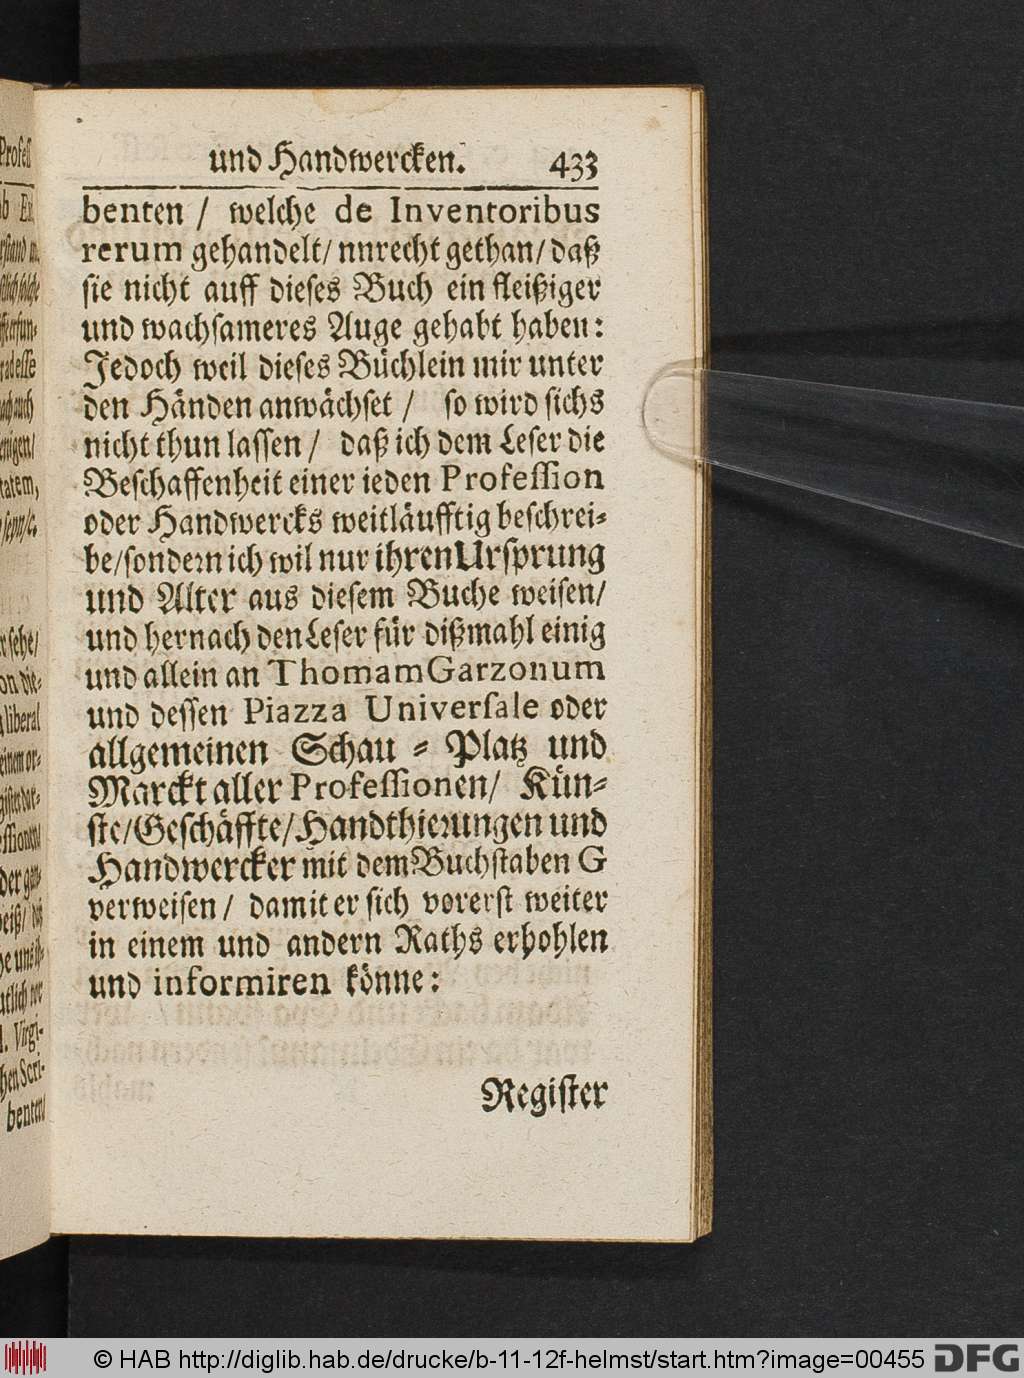 und Handwercken. 433
benten / welche de Inventoribus
rerum gehandelt/ nnrecht gethan/ daß
sie nicht auff dieses Buch ein fleißiger
und wachsameres Auge gehabt haben:
Jedoch weil dieses Büchlein mir unter
den Händen anwächset / so wird sichs
nicht thun lassen / daß ich dem Leser die
Beschaffenheit einer ieden Profession
oder Handwercks weitläufftig beschrei-
be/sondern ich wil nur ihren Ursprung
und Alter aus diesem Buche weisen/
und hernach den Leser für dißmahl einig
und allein an Thomam Garzonum
und dessen Piazza Universale oder
allgemeinen Schau - Platz und
Marckt aller Professionen/ Kün-
ste/Geschäffte/Handthierungen und
Handwercker mit dem Buchstaben G
verweisen / damit er sich vorerst weiter
in einem und andern Raths erhohlen
und informiren könne:
Register
© HAB http://diglib.hab.de/drucke/b-11-12f-helmst/start.htm?image=00455 DFG